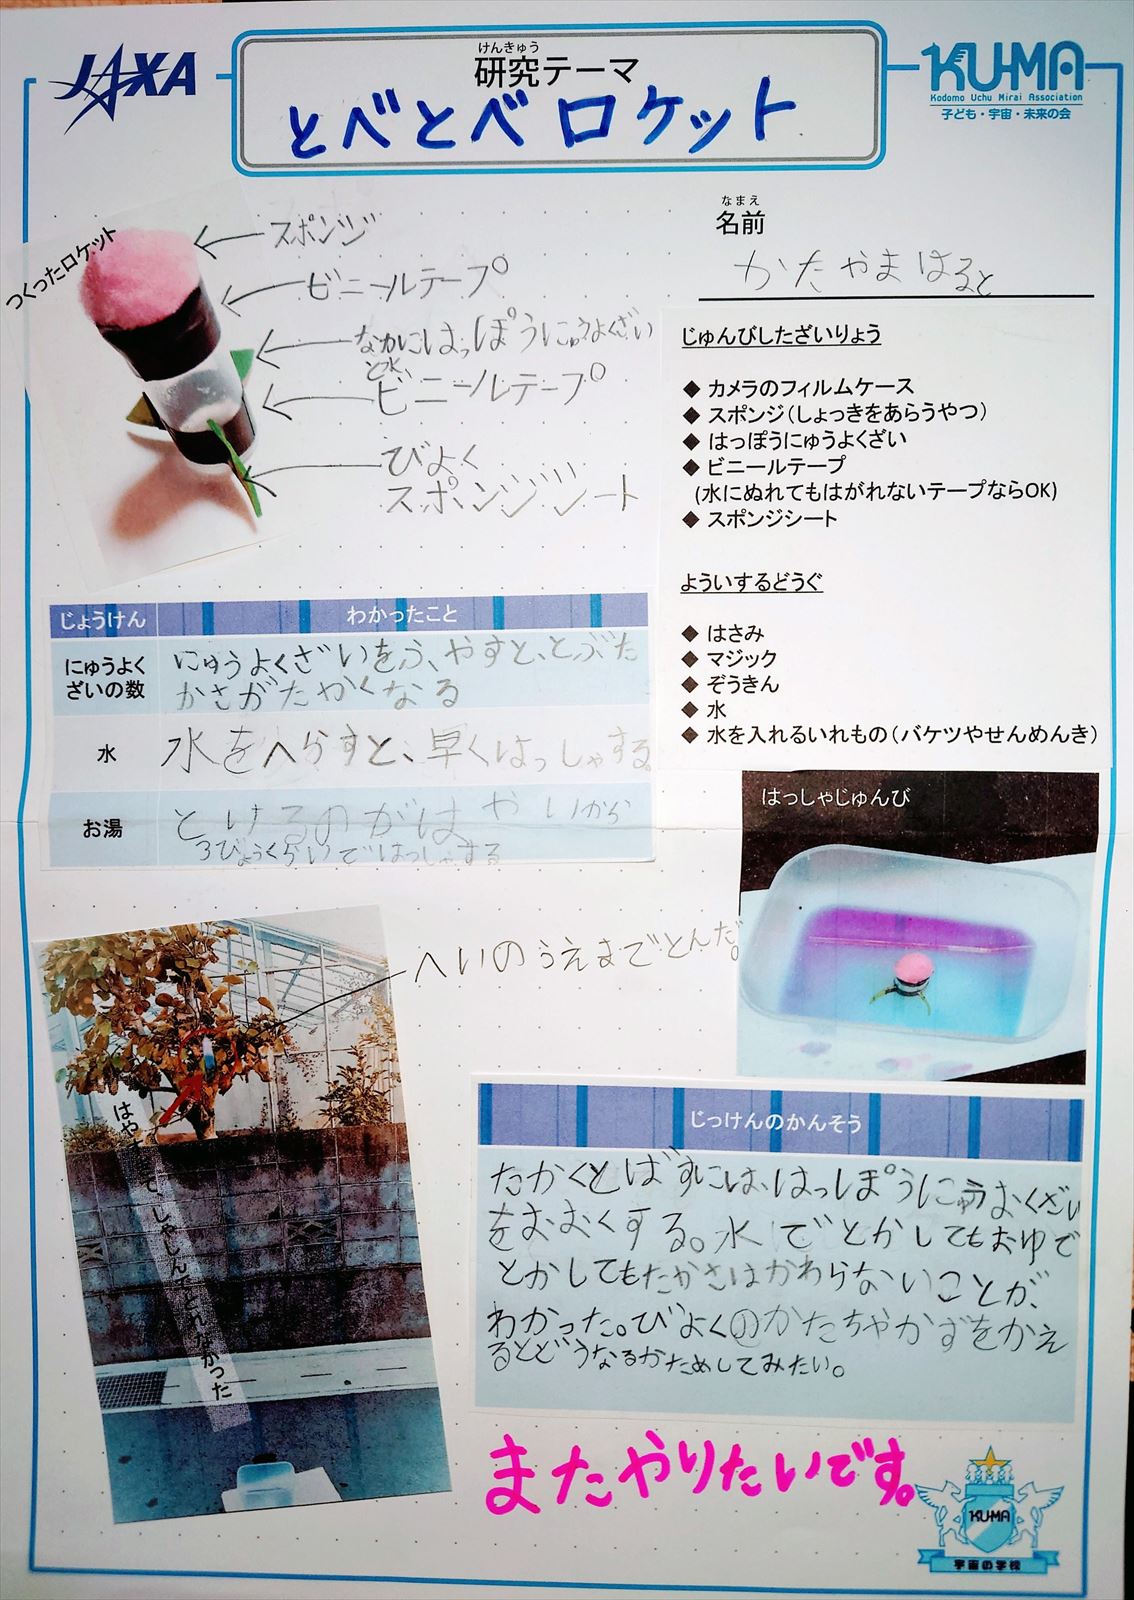 JAXA
けんきゅう
研究テーマ
とべとべロケット
KU-MA
Kodomo Uchu Mirai Association
子ども・宇宙・未来の会
なまえ
名前
かたやまはると
つくったロケット
スポンジ
ビニールテープ
なかにはっぽうにゅうよくざい
と水
ビニールテープ
びよく
スポンジシート
じゅんびしたざいりょう
◆ カメラのフィルムケース
◆ スポンジ(しょっきをあらうやつ)
◆ はっぽうにゅうよくざい
◆ ビニールテープ
(水にぬれてもはがれないテープならOK)
◆ スポンジシート
よういするどうぐ
◆ はさみ
◆ マジック
◆ ぞうきん
◆ 水
◆ 水を入れるいれもの(バケツやせんめんき)
じょうけん わかったこと
にゅうよく
ざいの数
にゅうよくざいをふ、やすと、とぶた
かさがたかくなる
水 水をへらすと、早くはっしゃする。
お湯 とけるのがはやいから
3びょうくらいではっしゃする
はっしゃじゅんび
へいのうえまでとんだ。
はやすぎて、しゃしんでとれなかった
じっけんのかんそう
たかくとばすには、はっぽうにゅうよくざい
をおおくする。水でとかしてもおゆで
とかしてもたかさはかわらないことが、
わかった。びよくのかたちやかずをかえ
るとどうなるかためしてみたい。
またやりたいです。
KU-MA
宇宙の学校